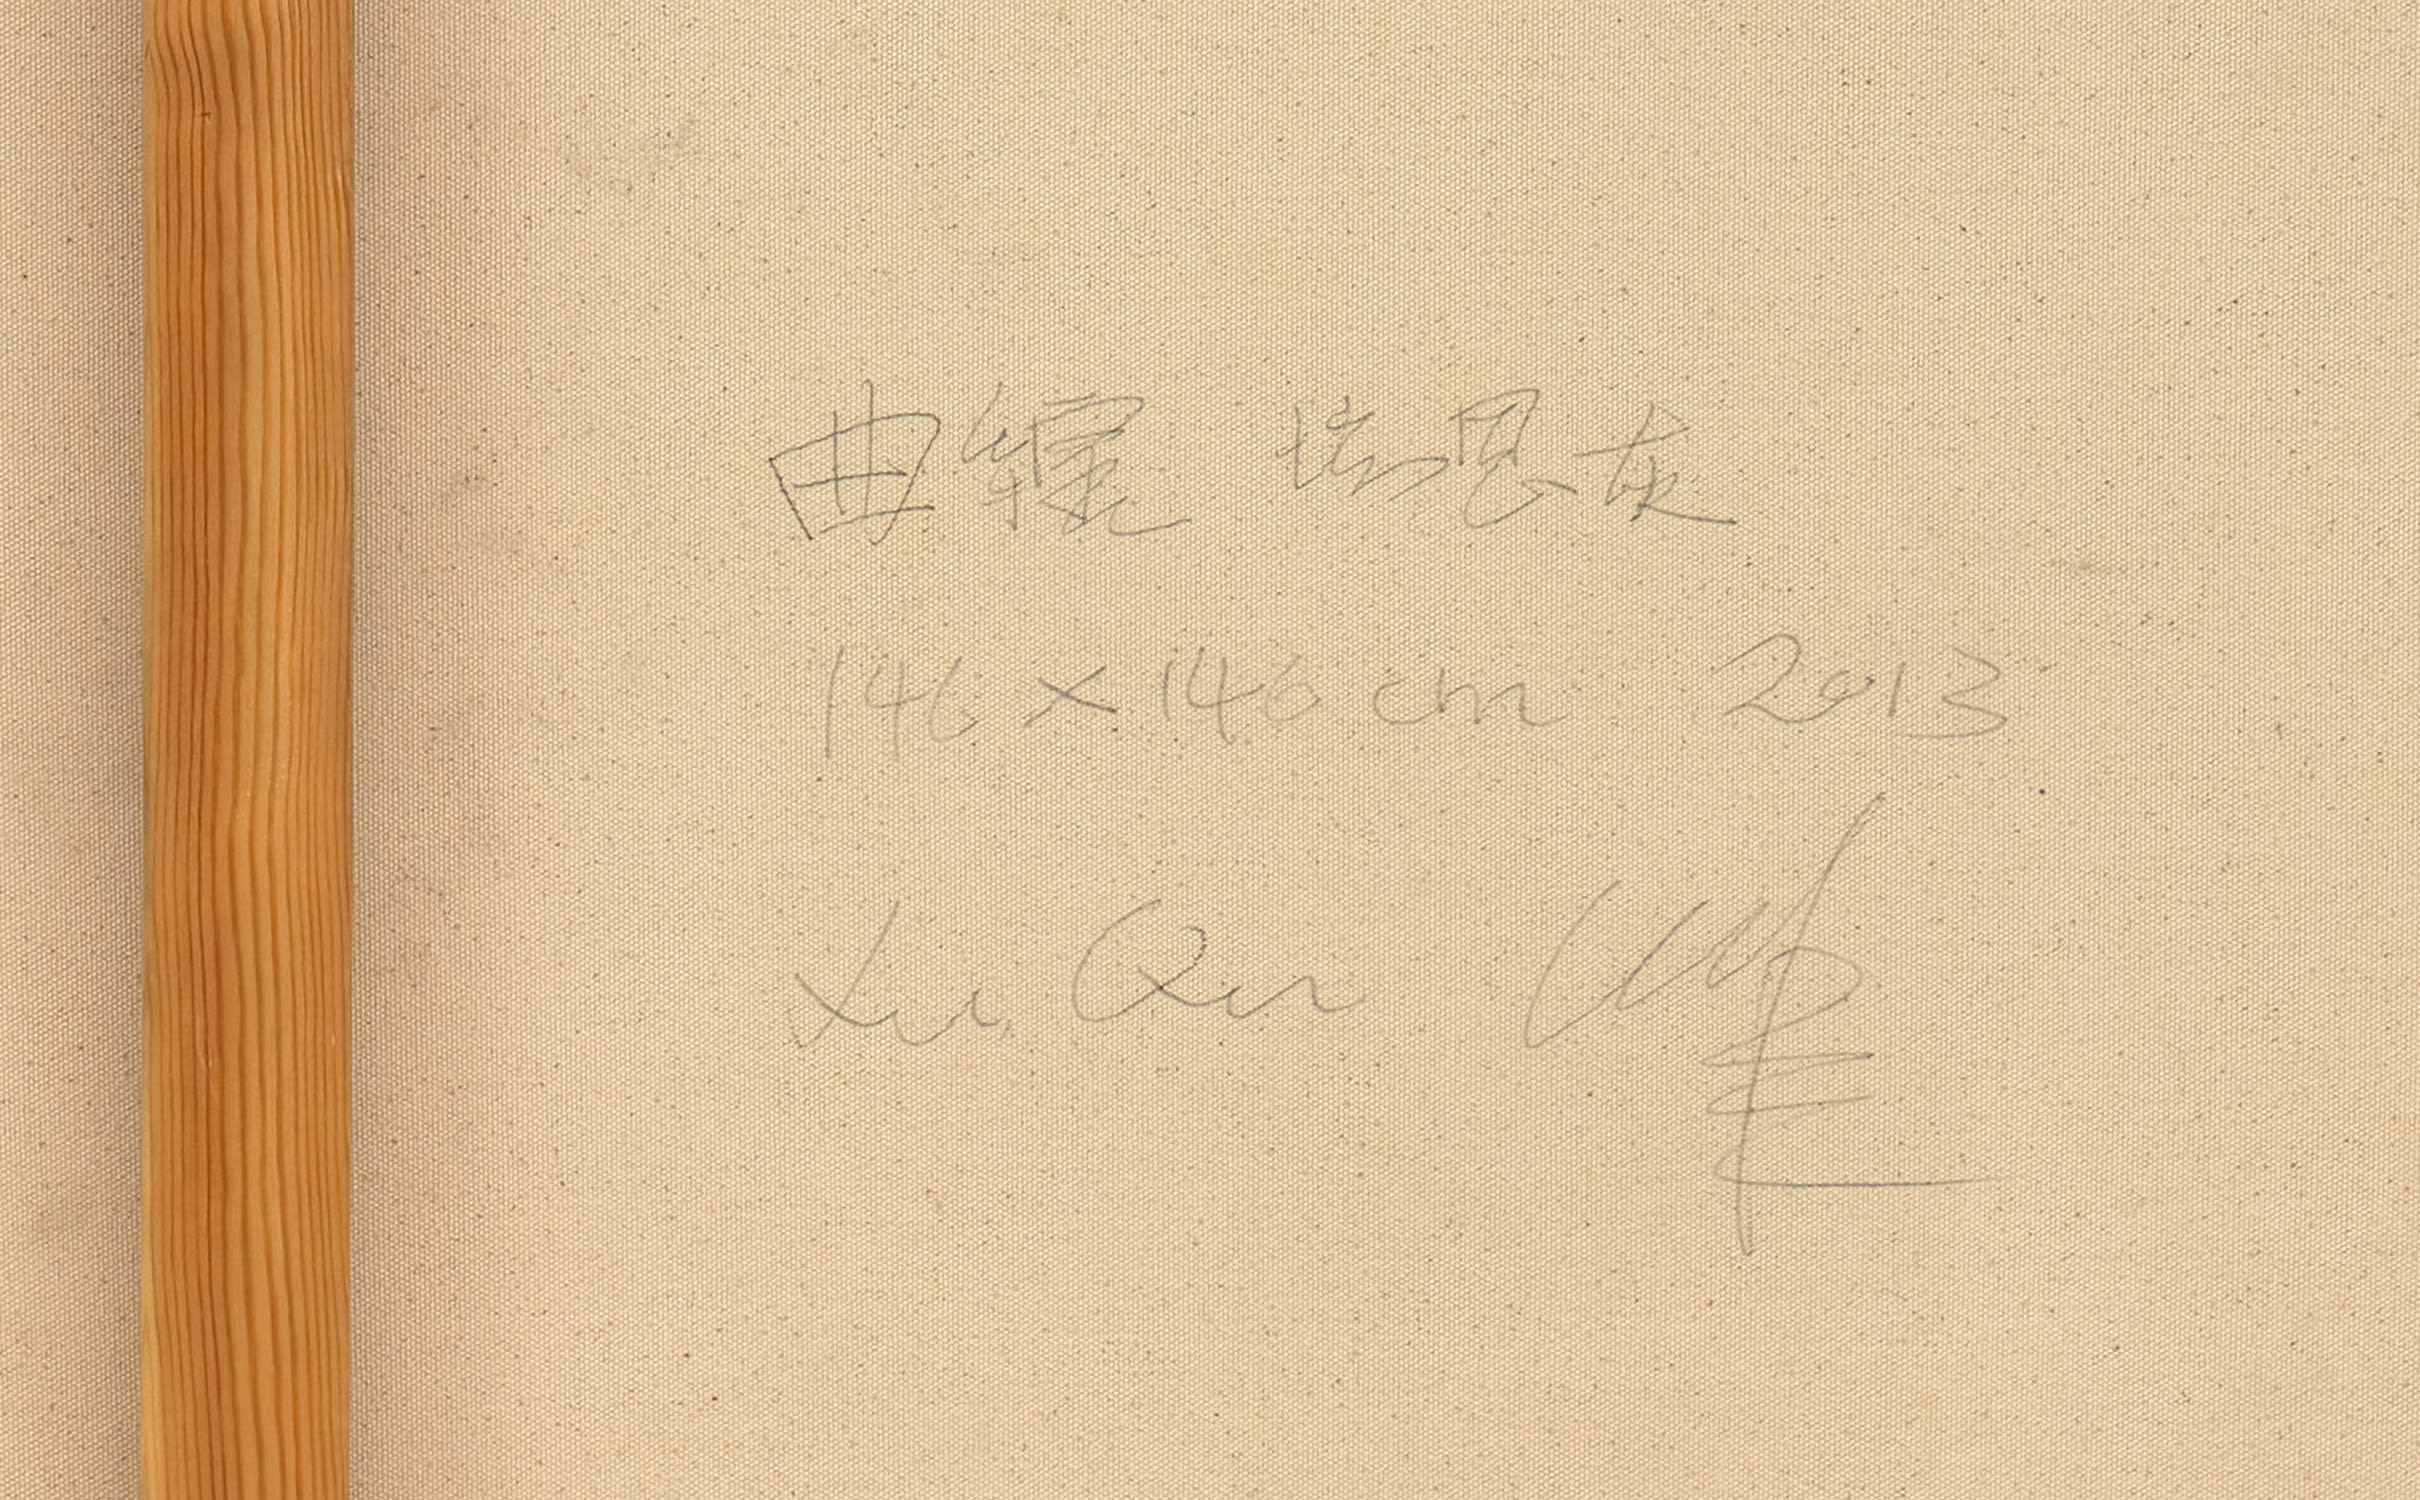 曲辕 培恩灰
146 × 146 cm 2013
Xu Qu